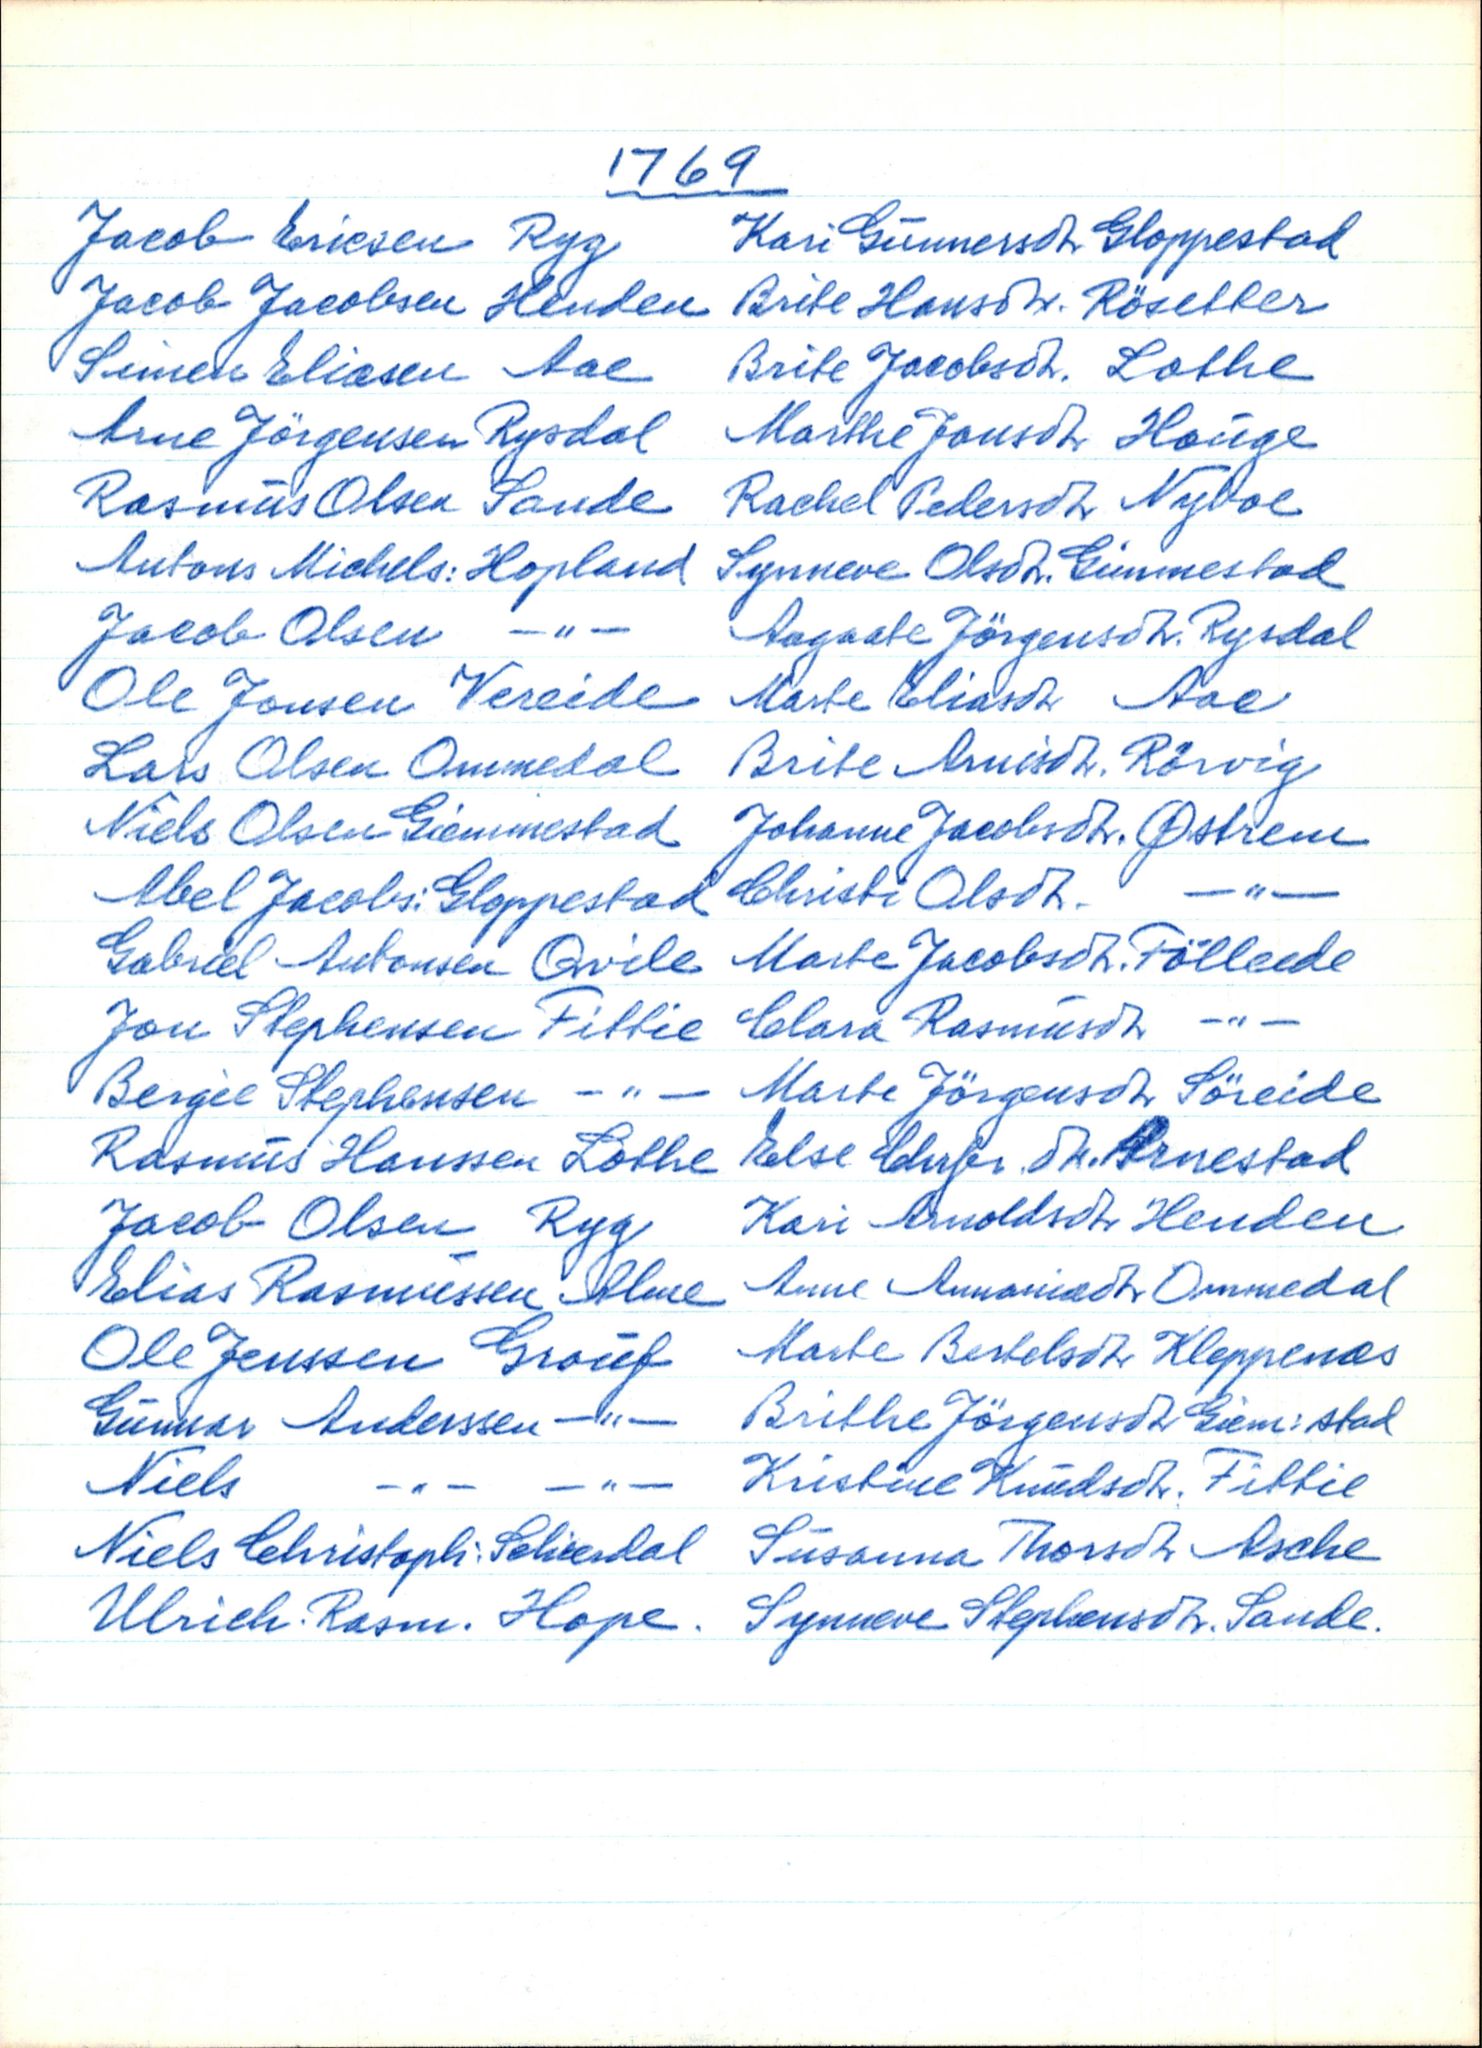 1769
Jacob Ericsen Ryg Kari Gunnersdtr Gloppestad
Jacob Jacobsen Henden Brite Hansdtr. Rösetter
Simen Eliasen Aae Brite Jacobsdtr. Lothe
Arne Jörgensen Rysdal Marthe Jonsdtr Houge
Rasmus Olsen Sande Rachel Pedersdtr Nyboe
Antons Michels: Hopland Synneve Olsdtr. Gimmestad
Jacob Olsen -"- Aagaate Jörgensdtr. Rysdal
Ole Jonsen Vereide Marte Eliasdtr Aae
Lars Olsen Ommedal Brite Arnisdtr. Rörvig
Niels Olsen Giemmestad Johanne Jacobsdtr. Østrem
Abel Jacobs: Gloppestad Christi Olsdtr. -"-
Gabriel Antonsen Qvile Marte Jacobsdtr. Fölleede
Jon Stephensen Fittie Clara Rasmusdtr -"-
Bergee Stephensen -"- Marte Jörgensdtr Söreide
Rasmus Hanssen Lothe Else Chrfr. dtr. Arnestad
Jacob Olsen Ryg Kari Arnoldsdtr Henden
Elias Rasmussen Alme Anne Annaniædtr Ommedal
Ole Jenssen Grouf Marte Bertelsdtr Kleppenæs
Gunnar Anderssen -"- Brithe Jörgensdtr Giem: stad
Niels -"- -"- Kristine Knudsdtr. Fittie
Niels Christoph: Scheerdal Susanna Thorsdtr Asche
Ulrich. Rasm. Hope. Synneve Stephensdtr. Sande.